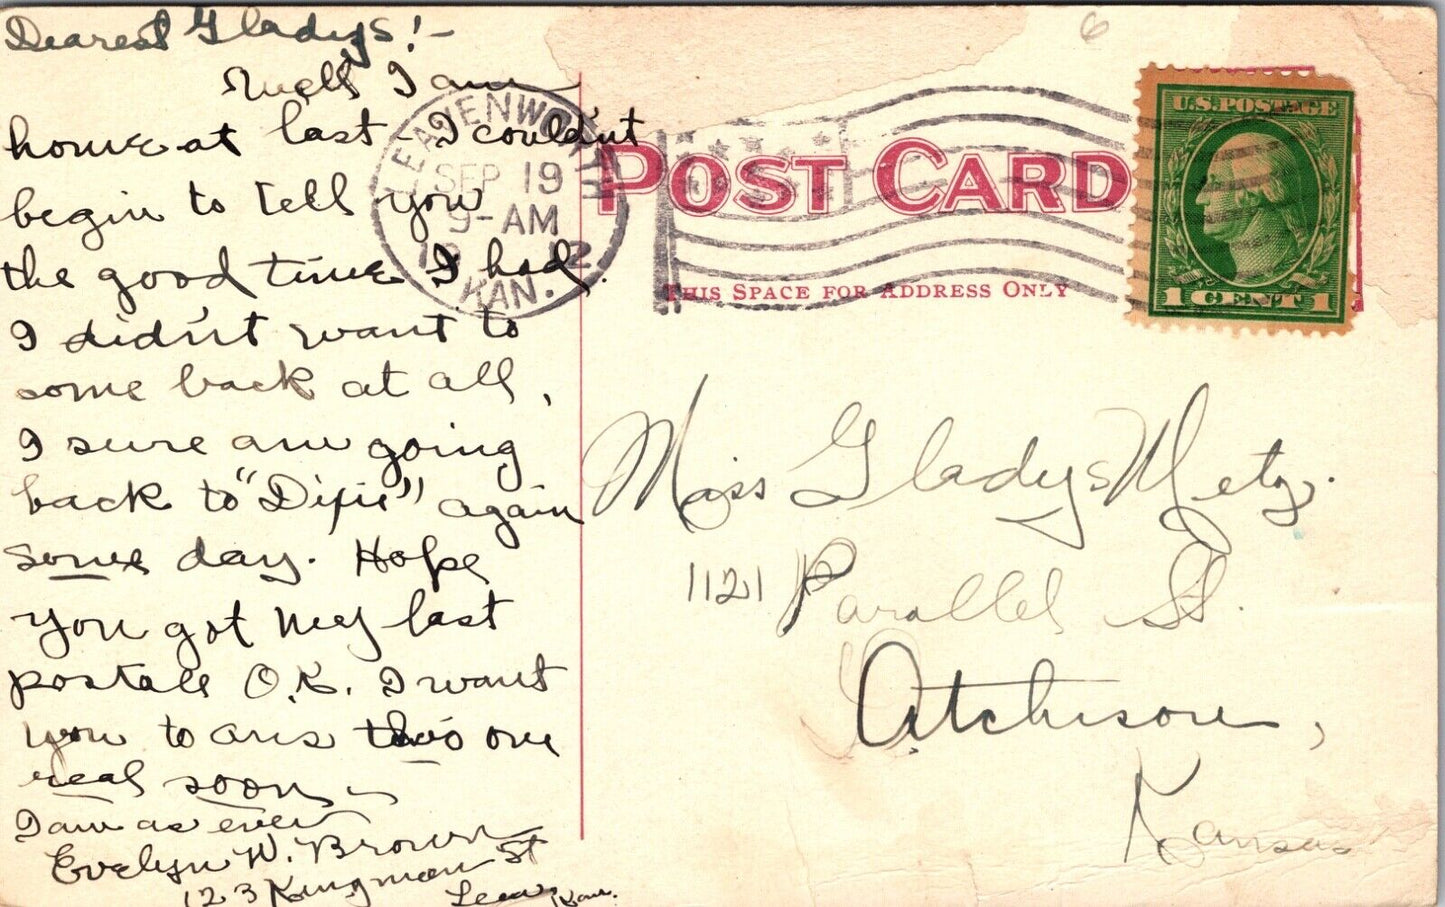 Dearest Gladys!-
Well I am
home at last I couldn't
begin to tell you
the good time I had.
I didn't want to
come back at all,
I sure am going
back to "Dixie" again
some day. Hope
you got my last
postall O.K. I want
you to ans this one
real soon
I am as ever
Evelyn W. Brown
123 Kingman St
Leav Kan.
LEAVENWORTH
SEP 19
9-AM
1912
KAN.
POST CARD
THIS SPACE FOR ADDRESS ONLY
6
U.S. POSTAGE
1 CENT 1
Miss Gladys Metz.
1121 Parallel St.
Atchison,
Kansas